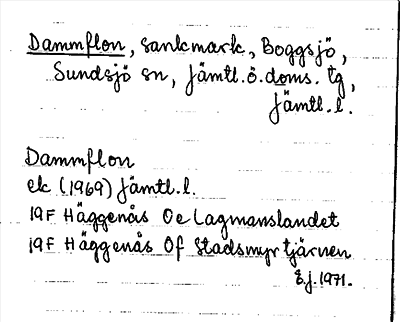 Dammflon, sankmark, Boggsjö,
Sundsjö sn, Jämtl.ö.doms. tg,
Jämtl.l.
Dammflon
ek (1969) Jämtl.l.
19F Häggenås Oe Lagmanslandet
19F Häggenås Of Stadsmyrtjärnen
E.J. 1971.